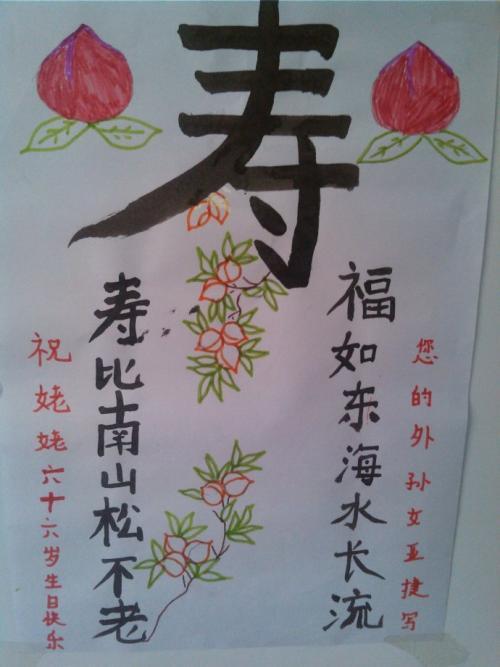 寿
福如东海水长流
寿比南山松不老
祝姥姥六十六岁生日快乐
您的外孙女亚捷写